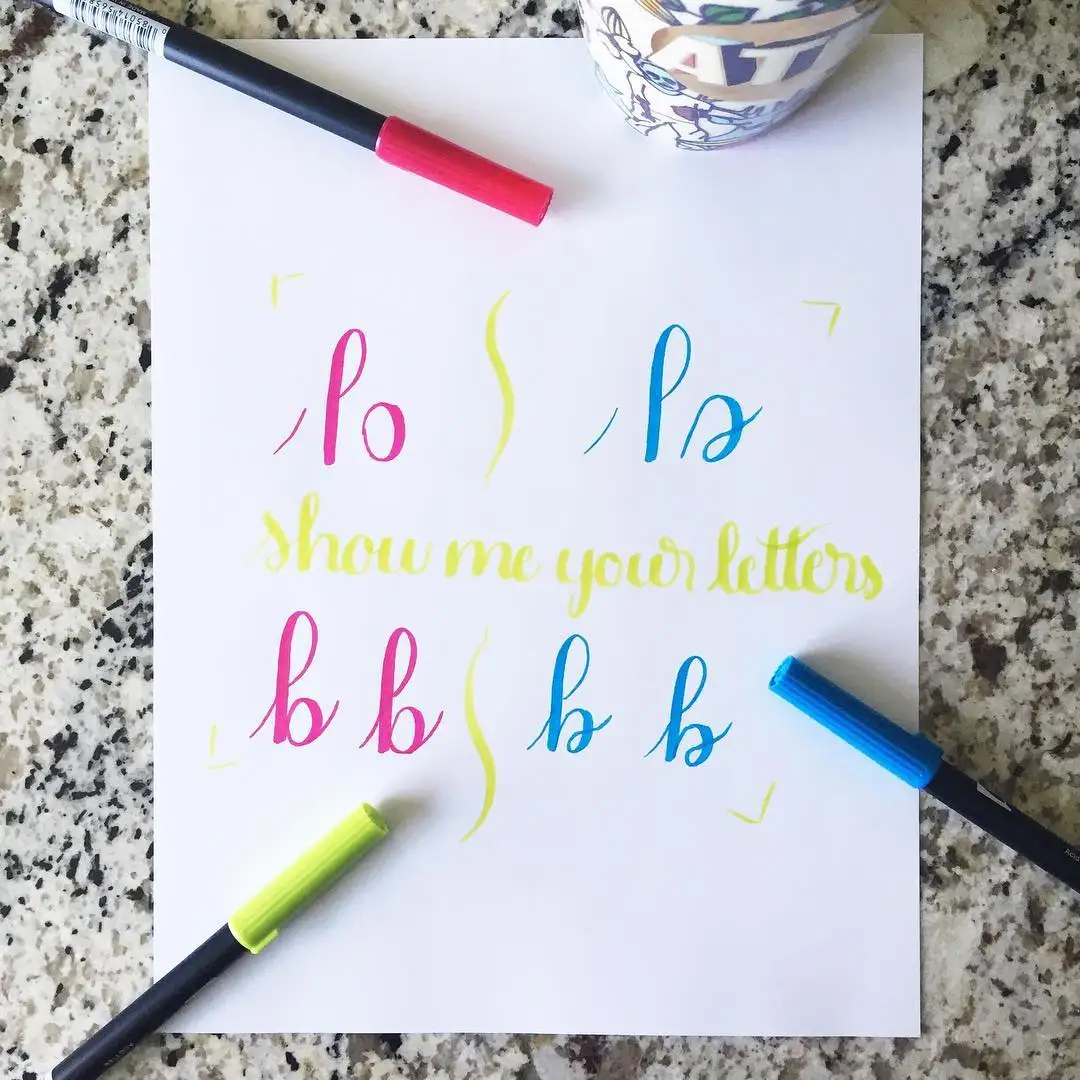 show me your letters
b b b b